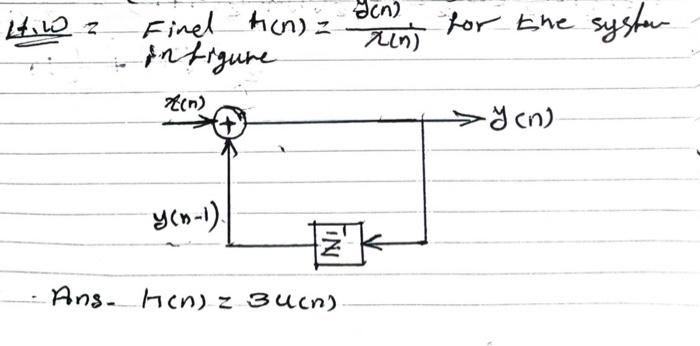 H.W = Find h(n) = y(n) / x(n) for the system
in figure
x(n)
+
y(n)
y(n-1)
z⁻¹
Ans- h(n) = 3u(n)